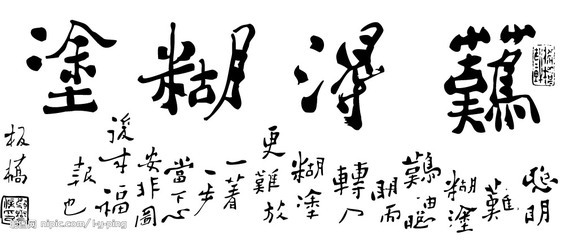 難得糊塗
聰明
難
糊塗
難由聰
明而
轉入
糊塗
更難放
一著
一步
當下心
安非圖
後來福
報也
板橋
nipic.com/ l-g-ping